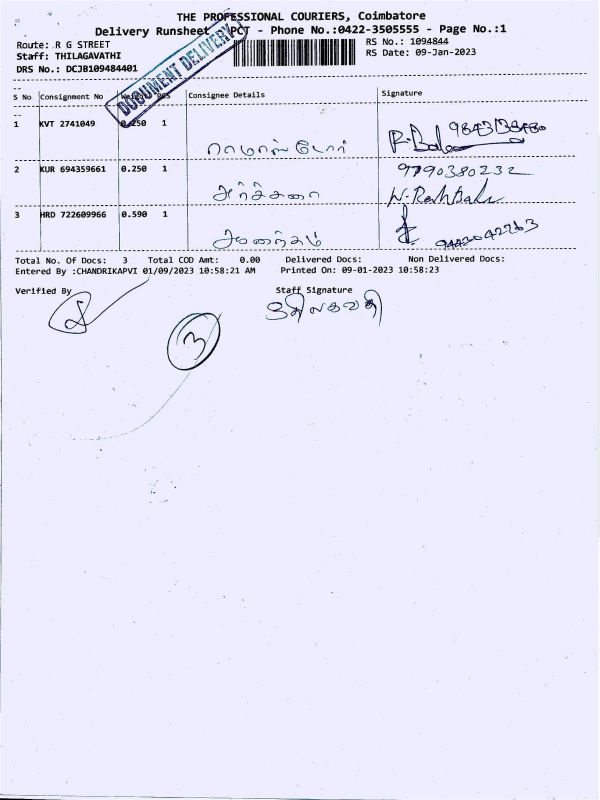 THE PROFESSIONAL COURIERS, Coimbatore
Delivery Runsheet PCT - Phone No.:0422-3505555 - Page No.:1
Route: R G STREET
RS No.: 1094844
Staff: THILAGAVATHI
RS Date: 09-Jan-2023
DRS No.: DCJB109484401
DOCUMENT DELIVERY
S No Consignment No PCS Consignee Details Signature
1 KVT 2741049 0.250 1
2 KUR 694359661 0.250 1 9790380232
அர்ச்சனா
3 HRD 722609966 0.590 1
9442042763
Total No. Of Docs: 3 Total COD Amt: 0.00 Delivered Docs: Non Delivered Docs:
Entered By :CHANDRIKAPVI 01/09/2023 10:58:21 AM Printed On: 09-01-2023 10:58:23
Verified By Staff Signature
திலகவதி
3